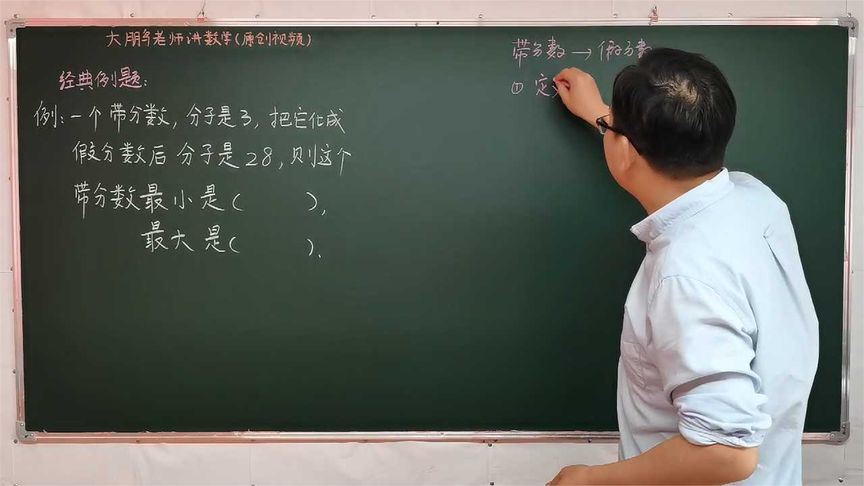 大鹏老师讲数学(原创视频)
经典例题:
例:一个带分数,分子是3,把它化成
假分数后分子是28,则这个
带分数最小是(    ),
最大是(    ).
带分数→假分数
① 定